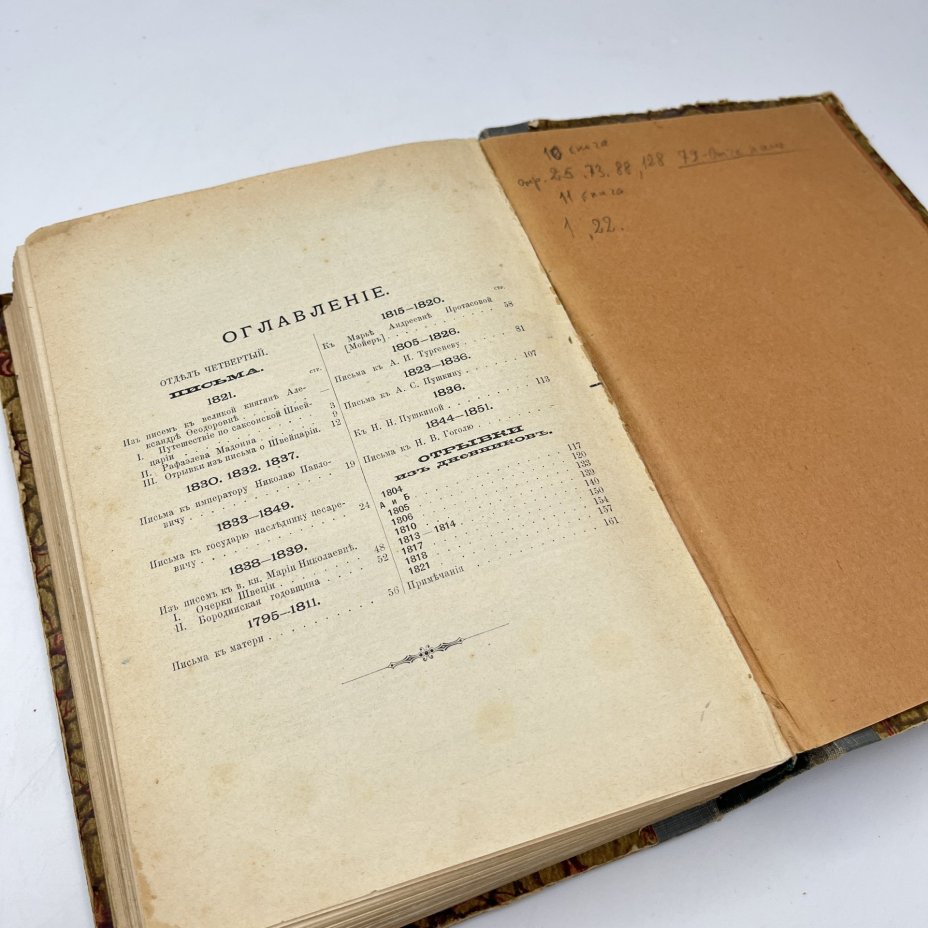 ОГЛАВЛЕНІЕ.
ОТДѢЛЪ ЧЕТВЕРТЫЙ.
ПИСЬМА.
стр.
1821.
Изъ писемъ къ великой княгинѣ Але-
ксандрѣ Ѳеодоровнѣ . . . . —
I. Путешествіе по саксонской Швей-
царіи . . . . . . . 3
II. Рафаэлева Мадонна . . . . 9
III. Отрывки изъ письма о Швейцаріи. 12
1830. 1832. 1837.
Письма къ императору Николаю Павло-
вичу . . . . . . . . 19
1833—1849.
Письма къ государю наслѣднику цесаре-
вичу . . . . . . . . 24
1838—1839.
Изъ писемъ къ в. кн. Маріи Николаевнѣ. 48
I. Очерки Швеціи . . . . . —
II. Бородинская годовщина . . . . 52
1795—1811.
Письма къ матери . . . . . . 56
стр.
1815—1820.
Къ Марьѣ Андреевнѣ Протасовой
[Мойеръ] . . . . . . . 58
1805—1826.
Письма къ А. И. Тургеневу . . . . 81
1823—1836.
Письма къ А. С. Пушкину . . . . 107
1836.
Къ Н. Н. Пушкиной . . . . . 113
1844—1851.
Письма къ Н. В. Гоголю . . . . —
ОТРЫВКИ
ИЗЪ ДНЕВНИКОВЪ.
1804 . . . . . . . . 117
А и Б . . . . . . . . 120
1805 . . . . . . . . 133
1806 . . . . . . . . 139
1810 . . . . . . . . 140
1813—1814 . . . . . . . 150
1817 . . . . . . . . 154
1818 . . . . . . . . 157
1821 . . . . . . . . —
Примѣчанія . . . . . . . 161
10 книга
стр. 25, 73. 88, 128 79-
11 книга
1, 22.